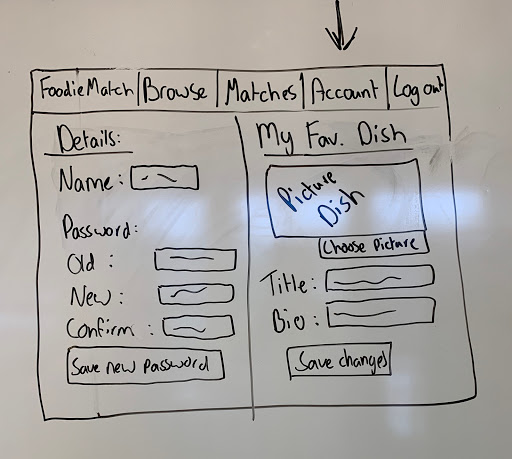 FoodieMatch Browse Matches Account Log out
Details:
Name:
Password:
Old :
New :
Confirm :
Save new password
My Fav. Dish
Picture
Dish
Choose Picture
Title:
Bio :
Save changes